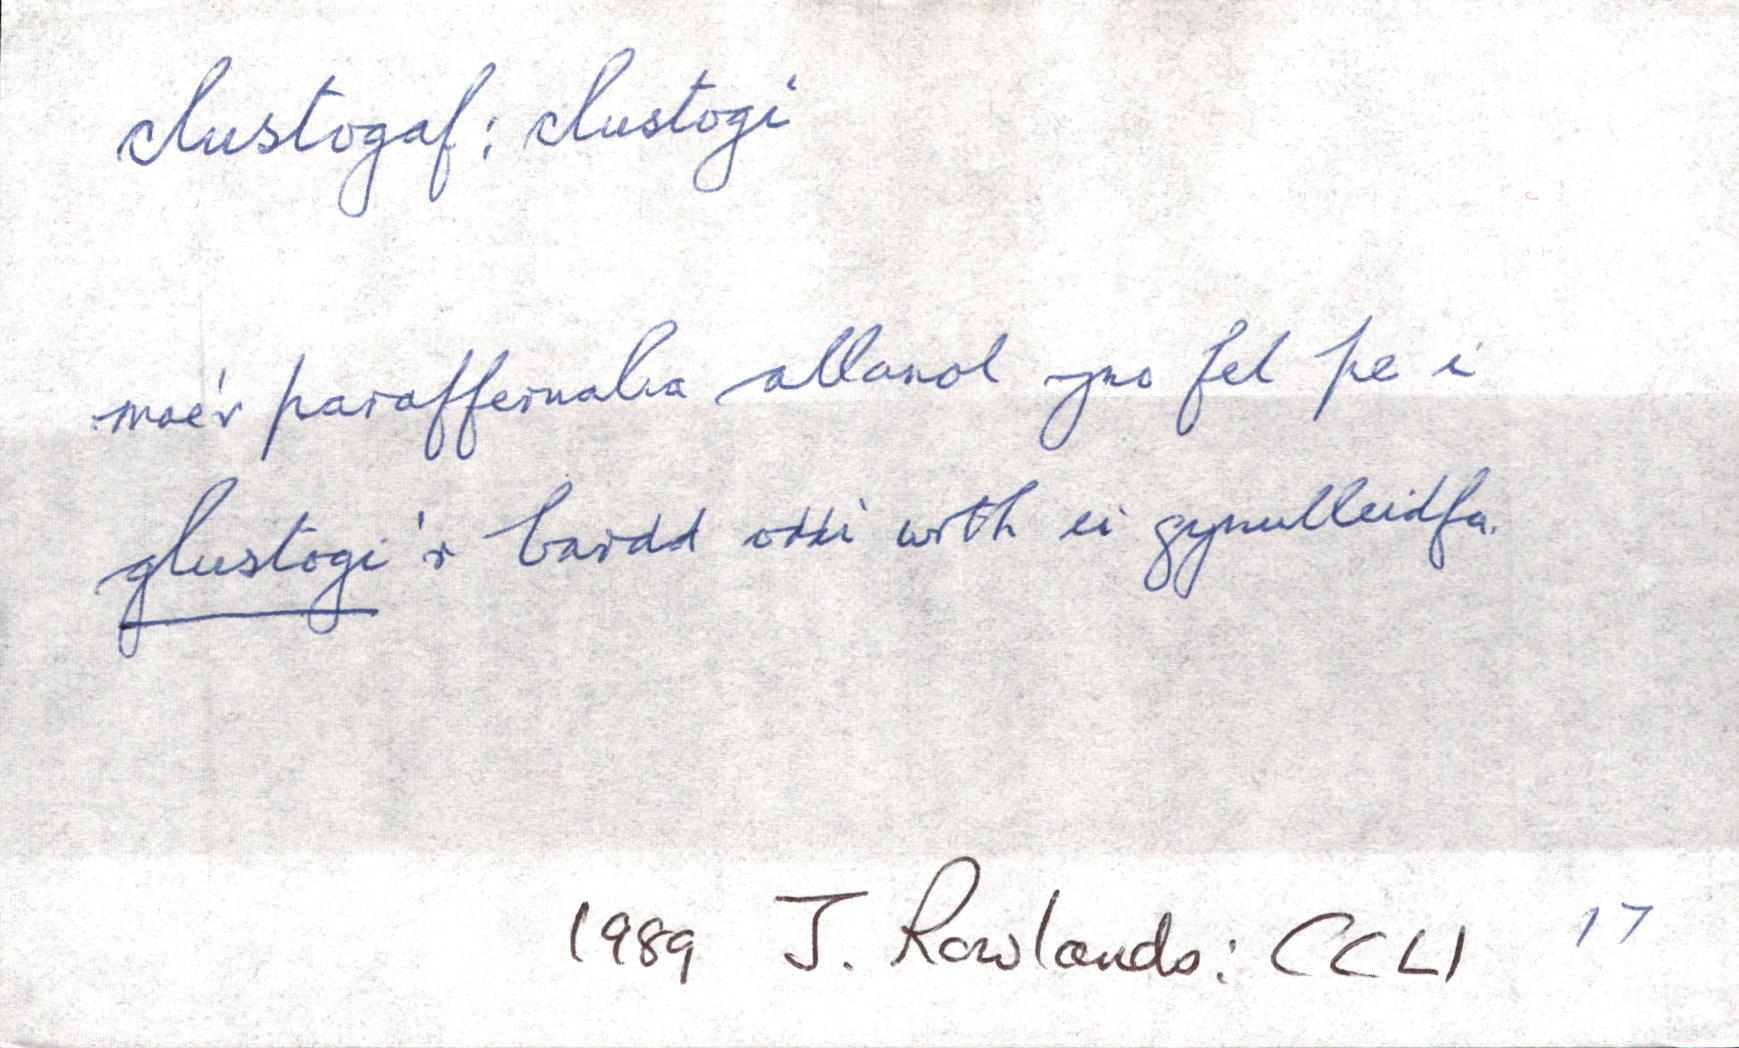 clustogaf: clustogi
mae'r paraffernalia allanol yno fel pe i
glustogi'r bardd oddi wrth ei gynulleidfa.
1989 J. Rowlands: CCLl 17